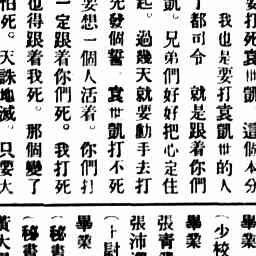 要打死袁世凱 這個本分
我也是要打袁世凱的人
了都司令 就是跟着你們
凱。兄弟們好好把心定住
起。過幾天就要動手去打
死發個誓 袁世凱打不死
要想一個人活着。你們打
一定跟着你們死。我打死
也得跟着我死。那個變了
怕死。天誅地滅。只要大
畢業
(少校
畢業
張青
張沛
(上尉
畢業
(秘書
(秘書
黃大